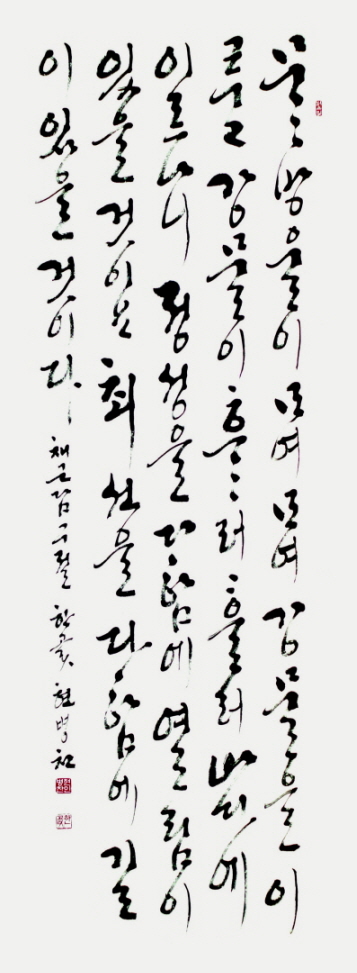 물방울이 모여 모여 강물을 이
루고 강물이 흘러 흘러 바다에
이르나니 정성을 다함에 열림이
있을 것이요 최선을 다함에 길
이 있을 것이다 채근담 구절 한곬 현병찬